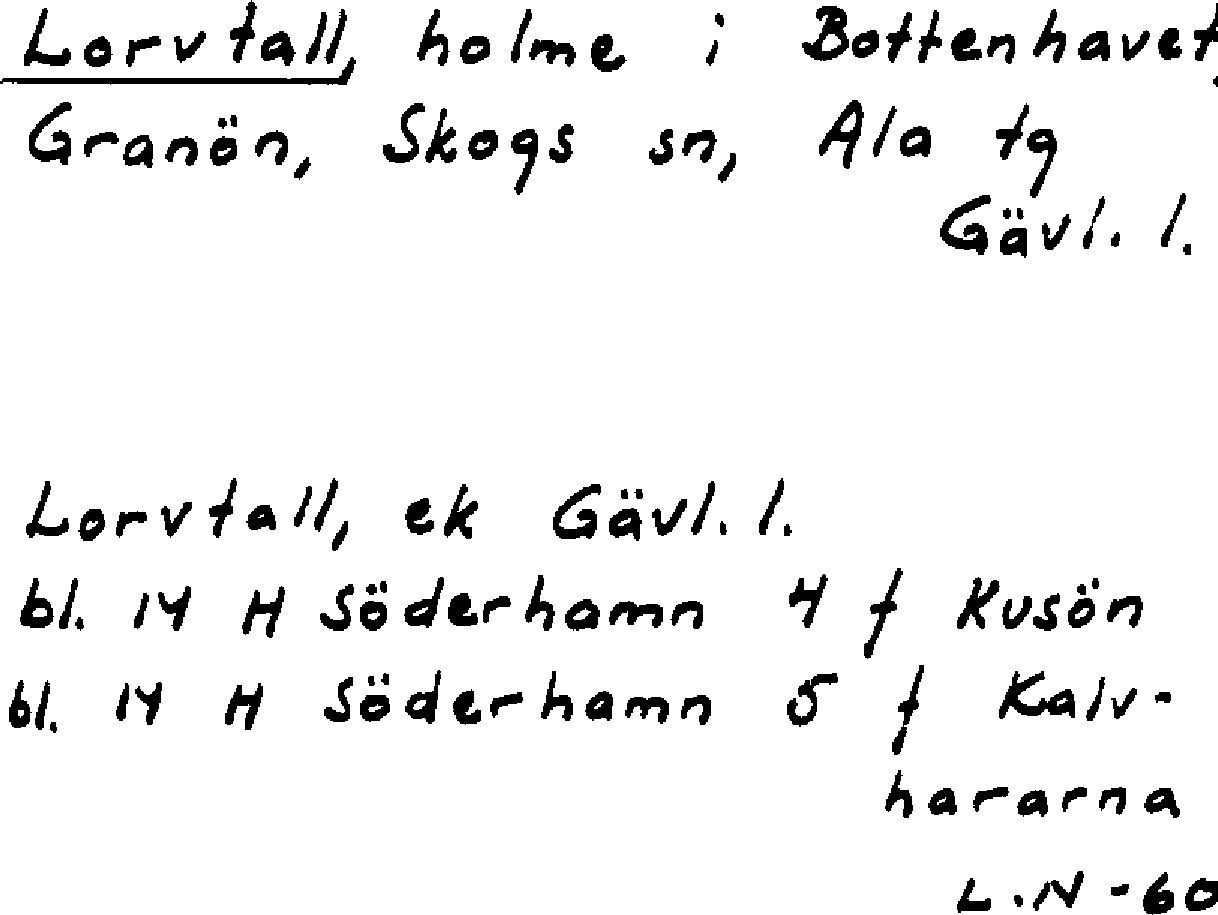 Lorvtall, holme i Bottenhavet,
Granön, Skogs sn, Ala tg
Gävl. l.
Lorvtall, ek Gävl. l.
bl. 14 H Söderhamn 4 f Kusön
bl. 14 H Söderhamn 5 f Kalv-
hararna
L.N -60